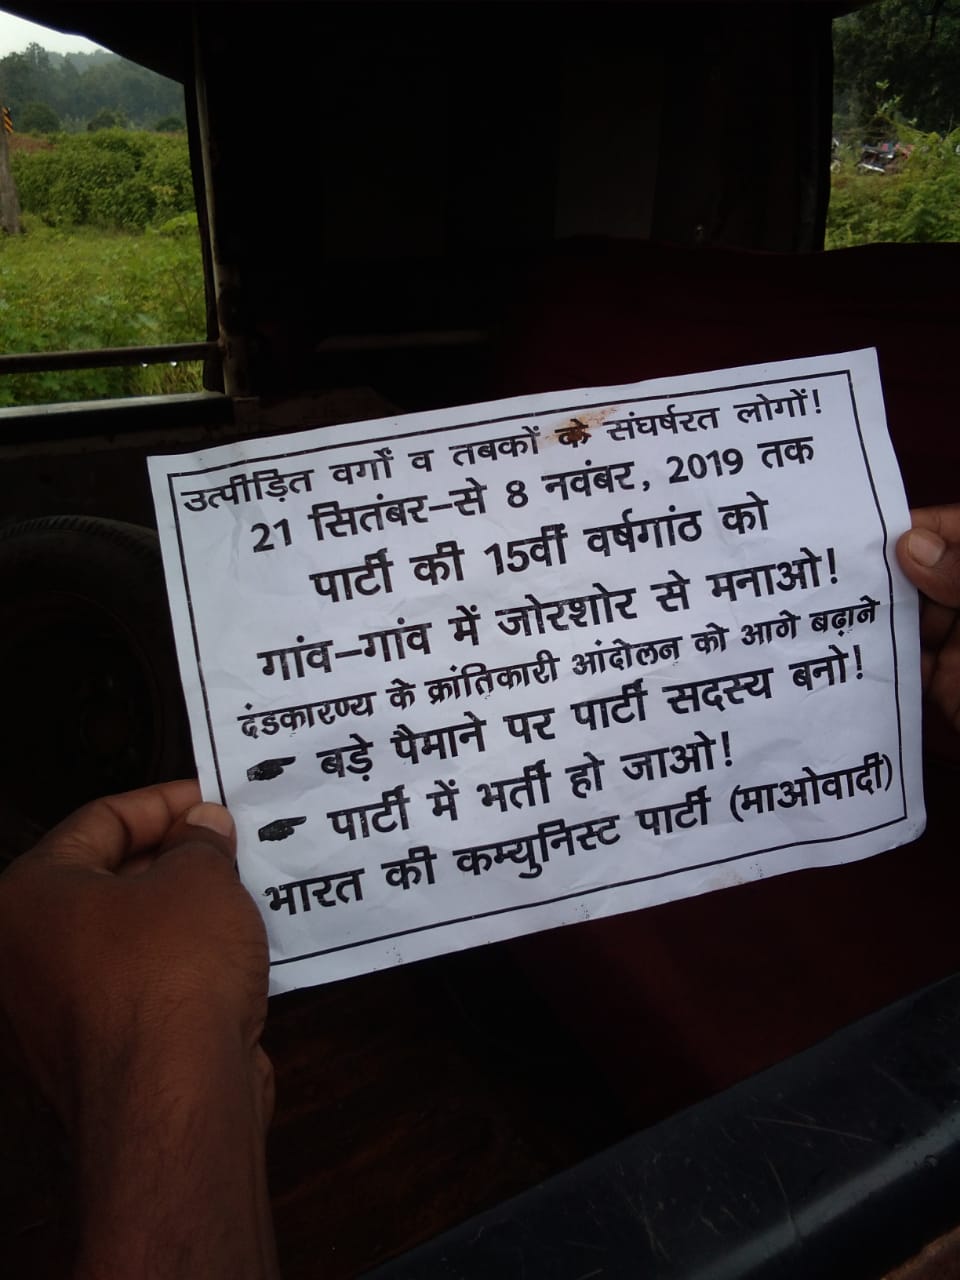 उत्पीड़ित वर्गों व तबकों के संघर्षरत लोगों!
21 सितंबर-से 8 नवंबर, 2019 तक
पार्टी की 15वीं वर्षगांठ को
गांव-गांव में जोरशोर से मनाओ!
दंडकारण्य के क्रांतिकारी आंदोलन को आगे बढ़ाने
☛ बड़े पैमाने पर पार्टी सदस्य बनो!
☛ पार्टी में भर्ती हो जाओ!
भारत की कम्युनिस्ट पार्टी (माओवादी)